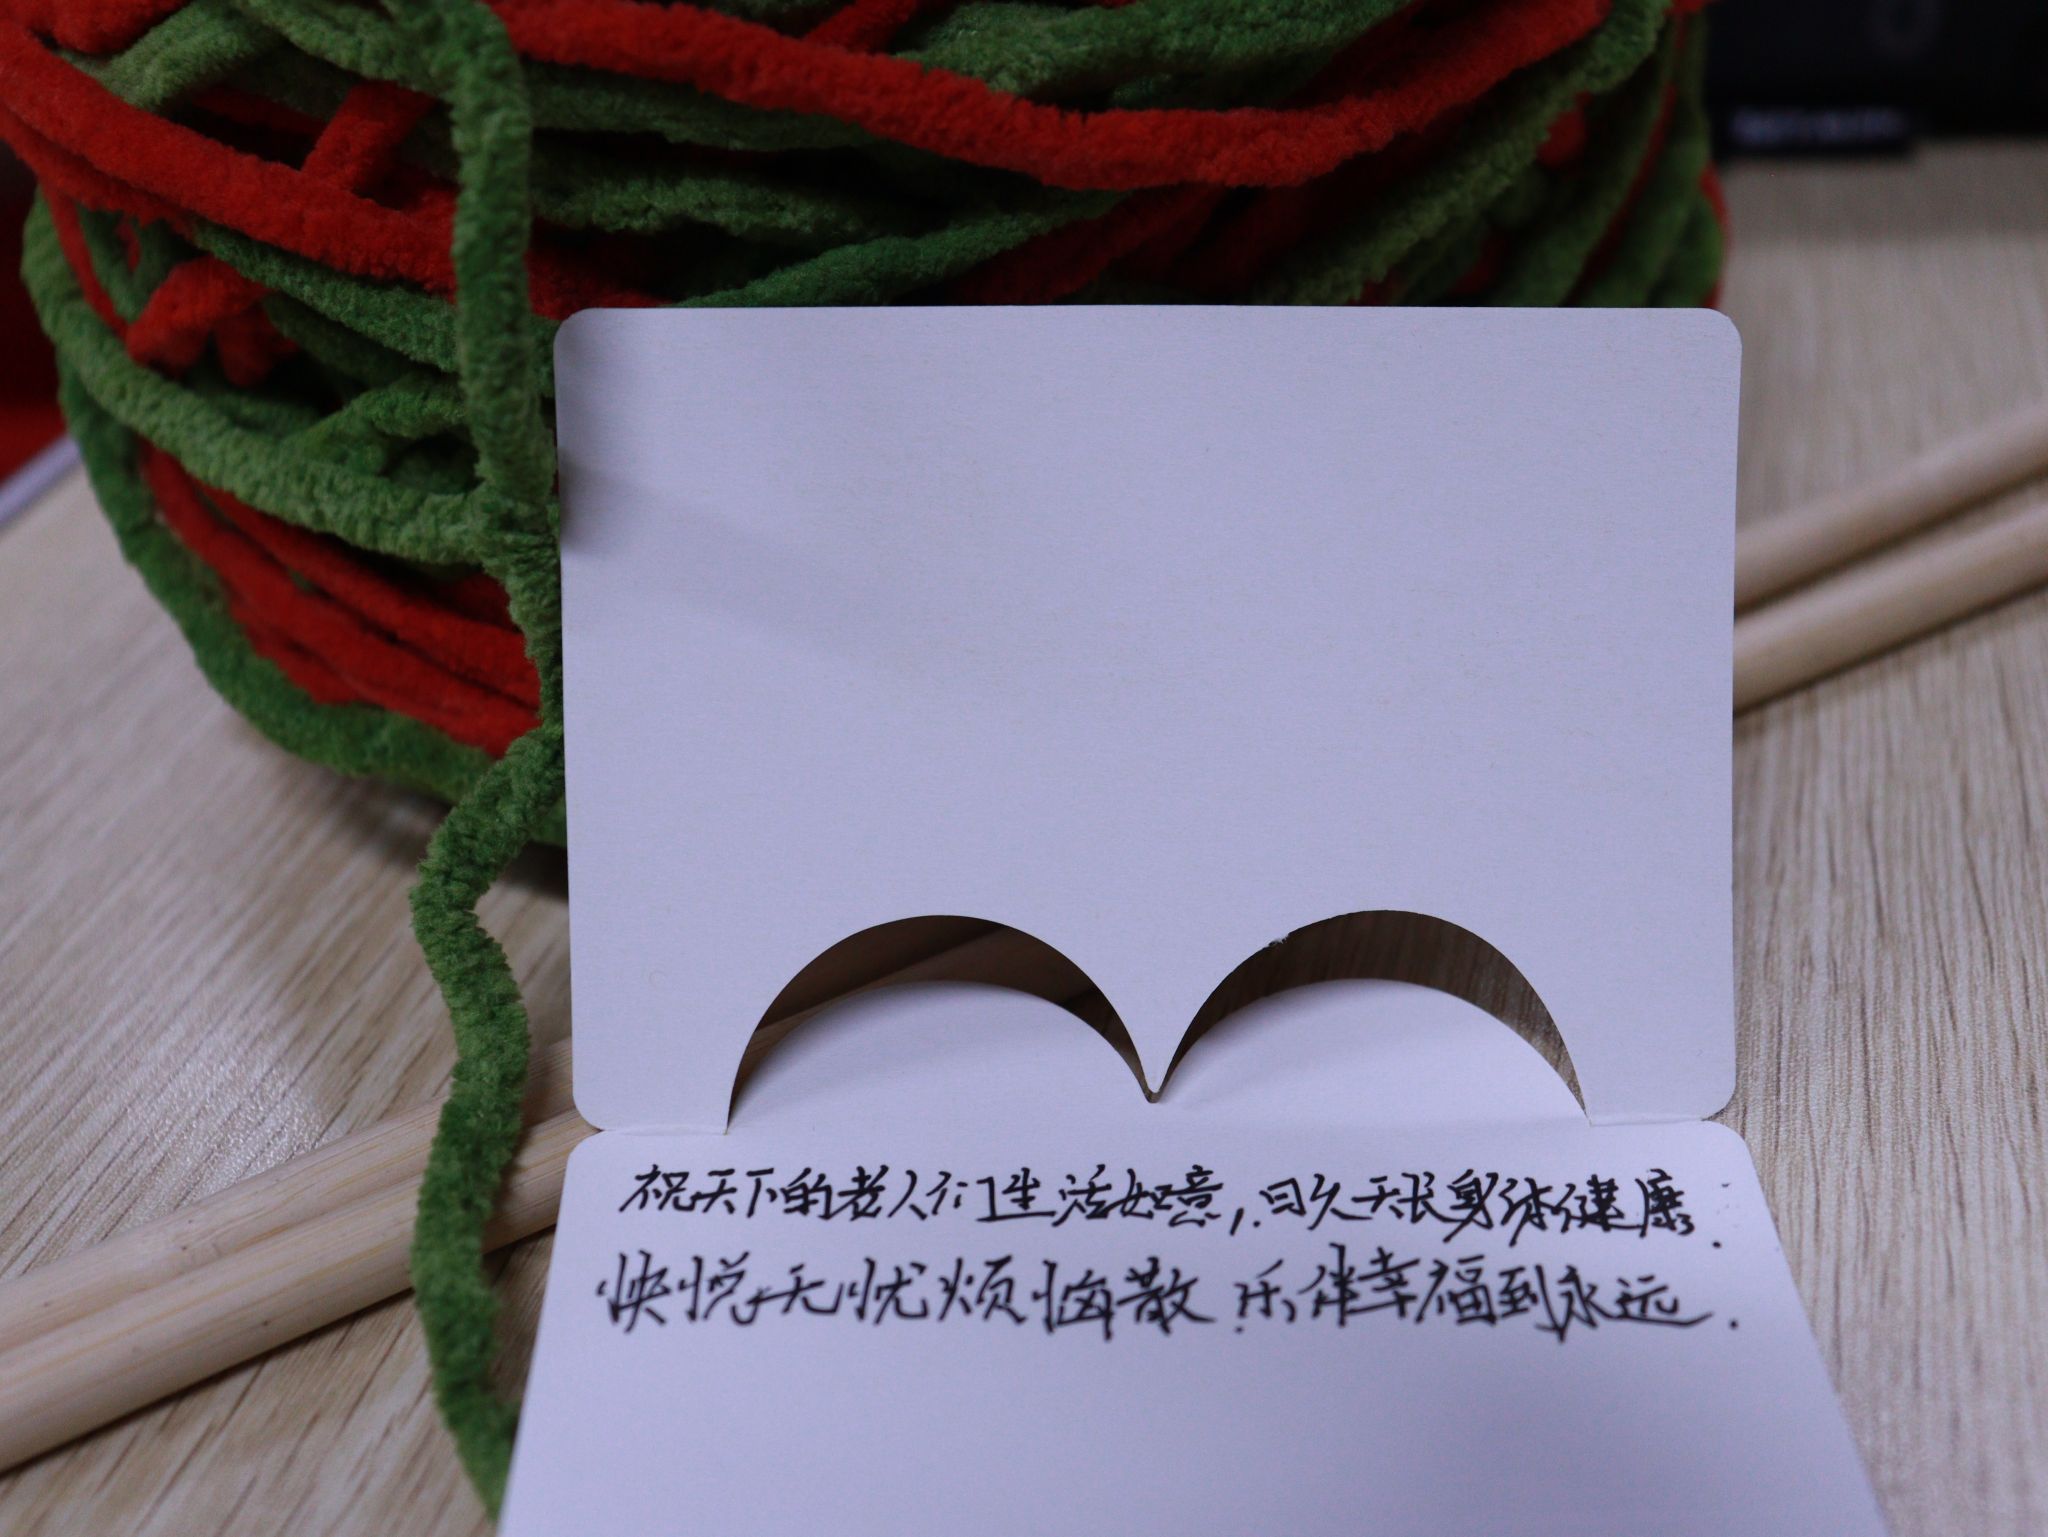 祝天下的老人们生活如意,日久天长身体健康.
快悦无忧烦恼散.乐伴幸福到永远.